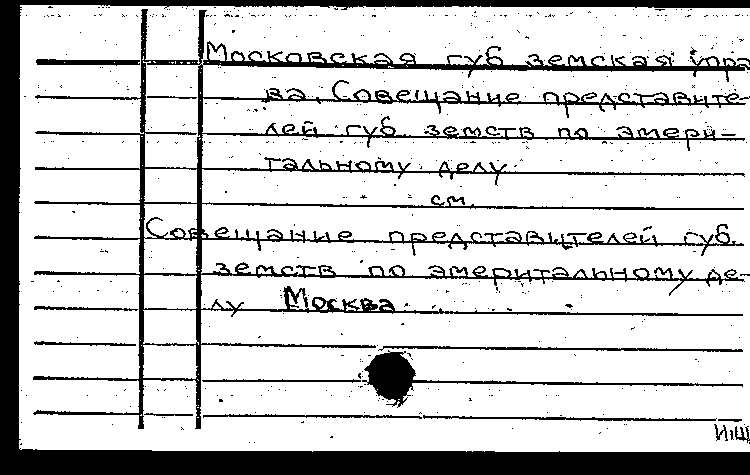 Московская губ земская упра
ва. Совещание представите-
лей губ земств по эмери-
тальному делу
см.
Совещание представителей губ.
земств по эмеритальному де-
лу Москва